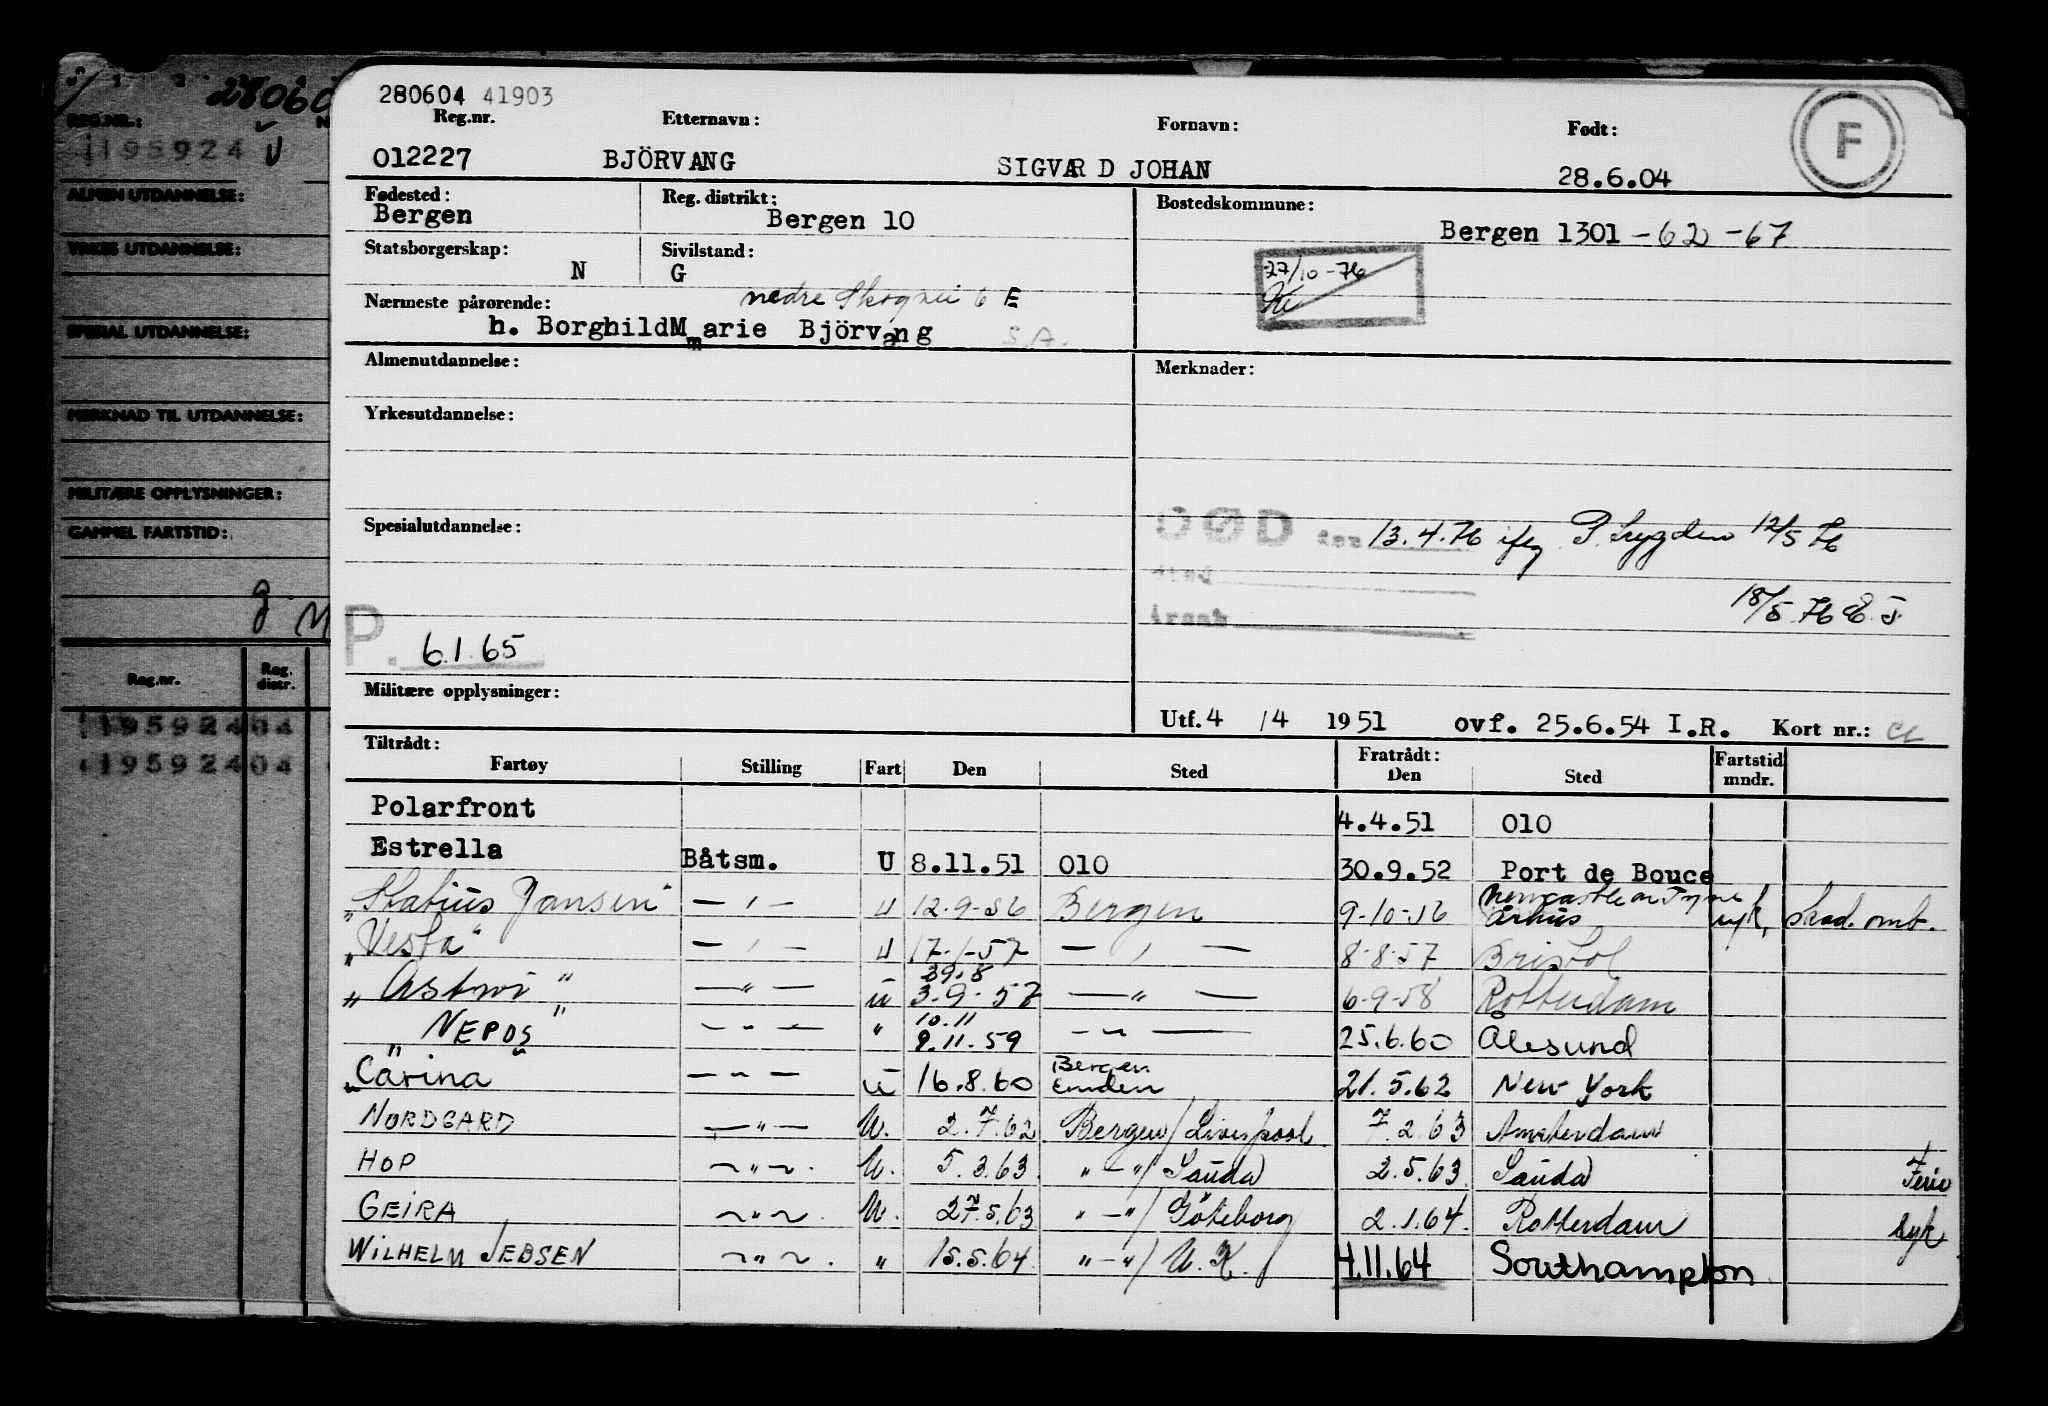 280604 41903
Reg.nr. Etternavn: Fornavn: Født:
012227 BJÖRVANG SIGVARD JOHAN 28.6.04
F
Fødested: Reg. distrikt: Bostedskommune:
Bergen Bergen 10 Bergen 1301 -62 -67
Statsborgerskap: Sivilstand:
N G
27/10-76
Nærmeste pårørende: nedre Skogvei 6 E
h. Borghild Marie Björvang S.A.
Almenutdannelse: Merknader:
Yrkesutdannelse:
Spesialutdannelse:
DØD den 13.4.76 iflg. P. Trygden 12/5 76
sted
årsak
18/5.76
P. 6.1.65
Militære opplysninger:
Utf. 4 /4 1951 ovf. 25.6.54 I.R. Kort nr.:
Tiltrådt: Fratrådt:
Fartøy Stilling Fart Den Sted Den Sted Fartstid mndr.
Polarfront 4.4.51 010
Estrella Båtsm. U 8.11.51 010 30.9.52 Port de Bouce
Statius Jansen — " — U 12.9-56 Bergen 9-10-56 Newcastle on Tyne Århus syk, skad. omb.
"Vesta" — " — U 17-1-57 — " — 8-8-57 Bristol
"Astrid" — " — U 29.8 3-9-57 — " — 6-9-58 Rotterdam
"NEPOS" — " — " 10.11 9.11.59 — " — 25.6.60 Ålesund
"Carina" — " — U 16.8.60 Bergen Emden 21.5.62 New York
NORDGARD — " — U. 2.7.62 Bergen/Liverpool 7.2.63 Amsterdam
HOP — " — U. 5.3.63. " — "/Sauda 2.5.63. Sauda Ferie
GEIRA — " — U. 27.5.63 " — "/Göteborg 2.1.64. Rotterdam syk
WILHELM JEBSEN — " — " 15.5.64. " — "/U.K. 4.11.64 Southampton
28060
REG.NR.:
195924
ALMEN UTDANNELSE:
YRKES UTDANNELSE:
SPESIAL UTDANNELSE:
MERKNAD TIL UTDANNELSE:
MILITÆRE OPPLYSNINGER:
GAMMEL FARTSTID:
Reg.nr. Reg. distr.
19592404
19592404